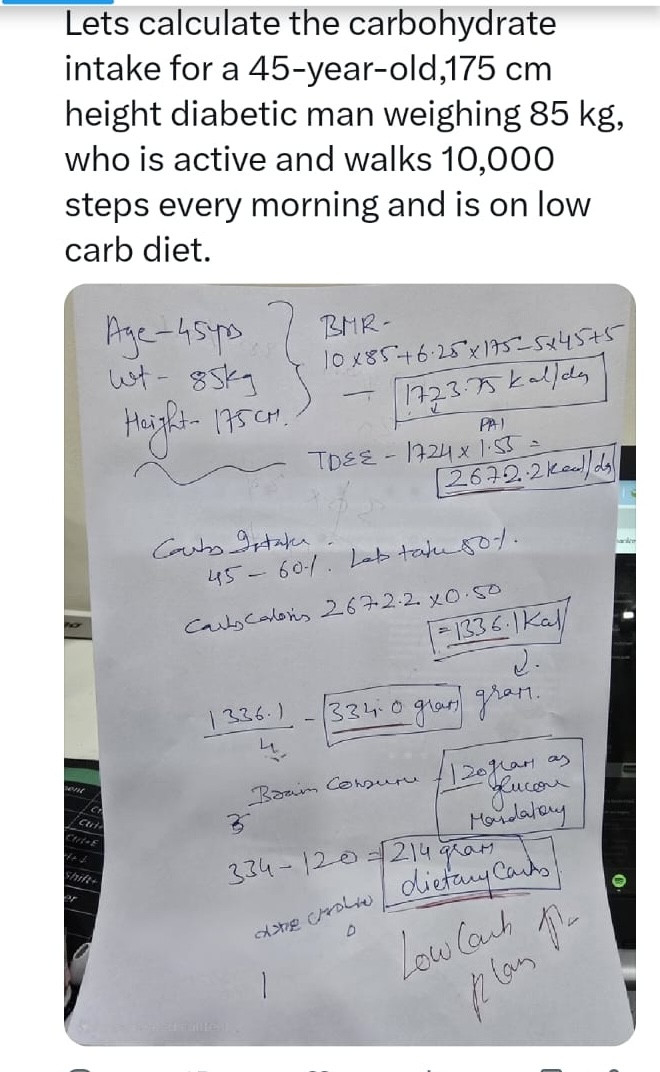 Lets calculate the carbohydrate
intake for a 45-year-old,175 cm
height diabetic man weighing 85 kg,
who is active and walks 10,000
steps every morning and is on low
carb diet.
Age-45yrs
Wt- 85kg
Height- 175 CM.
BMR-
10 x85+6.25x175-5x45+5
1723.75 kcal/day
PAI
TDEE - 1724 x 1.55 =
2672.2 kcal/day
Carbs Intake.
45 - 60%. Lets take 50%.
Carbs Calories 2672.2 x0.50
=1336.1 Kcal
1336.1 - 334.0 gram gram.
4
Brain Consume - 120 gram as
glucose
Mandatory
334-120 = 214 gram
dietary Carbs
Low Carb
plan